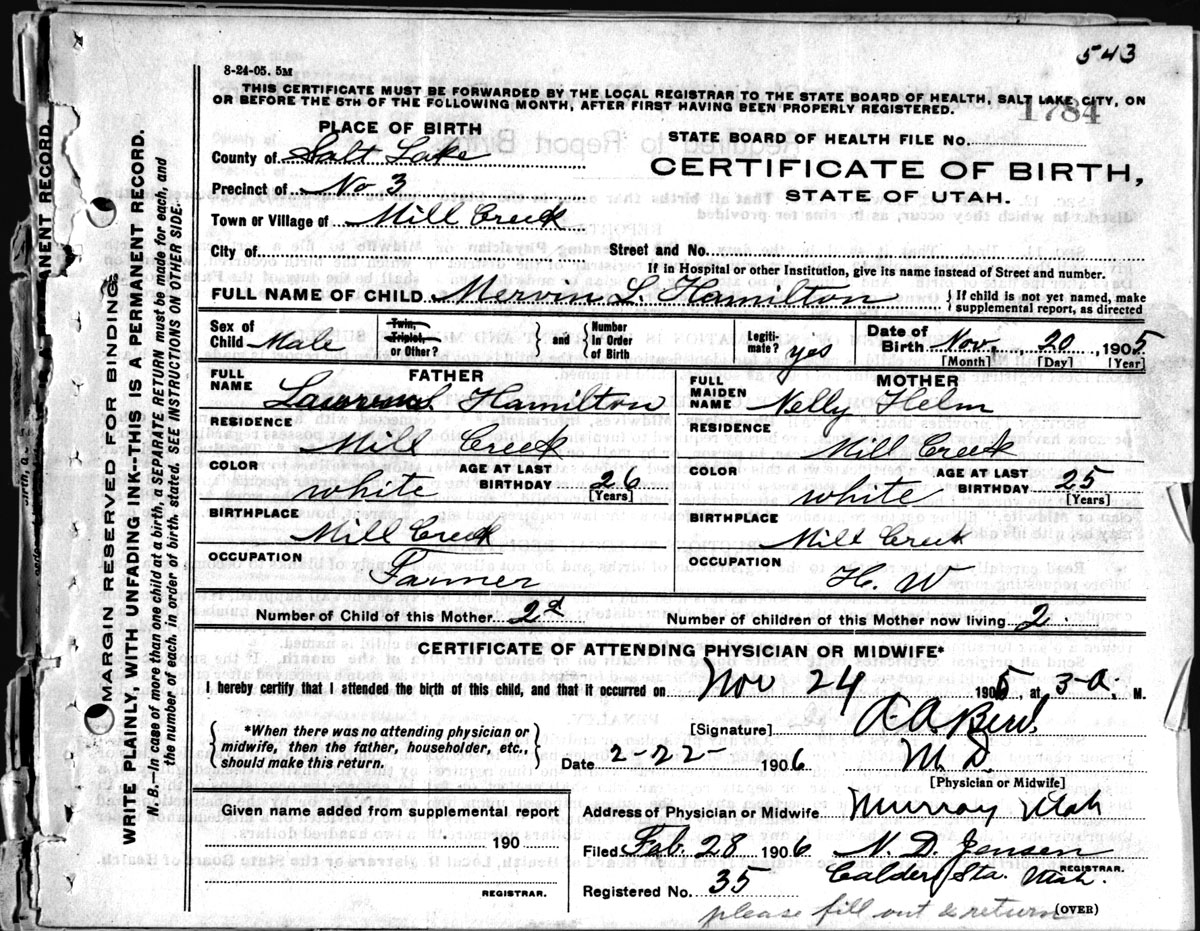 543
8-24-05. 5M
THIS CERTIFICATE MUST BE FORWARDED BY THE LOCAL REGISTRAR TO THE STATE BOARD OF HEALTH, SALT LAKE CITY, ON
OR BEFORE THE 5TH OF THE FOLLOWING MONTH, AFTER FIRST HAVING BEEN PROPERLY REGISTERED.
1784
PLACE OF BIRTH
STATE BOARD OF HEALTH FILE NO.
County of Salt Lake
CERTIFICATE OF BIRTH,
Precinct of No 3
STATE OF UTAH.
Town or Village of Mill Creek
City of
Street and No.
If in Hospital or other Institution, give its name instead of Street and number.
FULL NAME OF CHILD Mervin L. Hamilton {If child is not yet named, make supplemental report, as directed
Sex of Child Male
Twin, Triplet, or Other?
} and {
Number in Order of Birth
Legiti-mate? yes
Date of Birth Nov. 20, 1905
[Month] [Day] [Year]
FATHER
FULL NAME Hamilton
RESIDENCE
Mill Creek
COLOR white AGE AT LAST BIRTHDAY 26 [Years]
BIRTHPLACE
Mill Creek
OCCUPATION
Farmer
MOTHER
FULL MAIDEN NAME Nelly Helm
RESIDENCE
Mill Creek
COLOR white AGE AT LAST BIRTHDAY 25 [Years]
BIRTHPLACE
Mill Creek
OCCUPATION
H. W
Number of Child of this Mother 2d
Number of children of this Mother now living 2.
CERTIFICATE OF ATTENDING PHYSICIAN OR MIDWIFE*
I hereby certify that I attended the birth of this child, and that it occurred on Nov 24 1905, at 3-a. M.
{*When there was no attending physician or midwife, then the father, householder, etc., should make this return.}
[Signature] A. A.
Date 2-22- 1906 M. D.
[Physician or Midwife]
Given name added from supplemental report
190
REGISTRAR.
Address of Physician or Midwife Murray Utah
Filed Feb. 28 1906 N. D. Jensen
REGISTRAR.
Registered No. 35 Calder Sta. Utah.
please fill out & return
(OVER)
MARGIN RESERVED FOR BINDING.
WRITE PLAINLY, WITH UNFADING INK--THIS IS A PERMANENT RECORD.
B.--In case of more than one child at a birth, a SEPARATE RETURN must be made for each, and
the number of each, in order of birth, stated. SEE INSTRUCTIONS ON OTHER SIDE.
NENT RECORD.